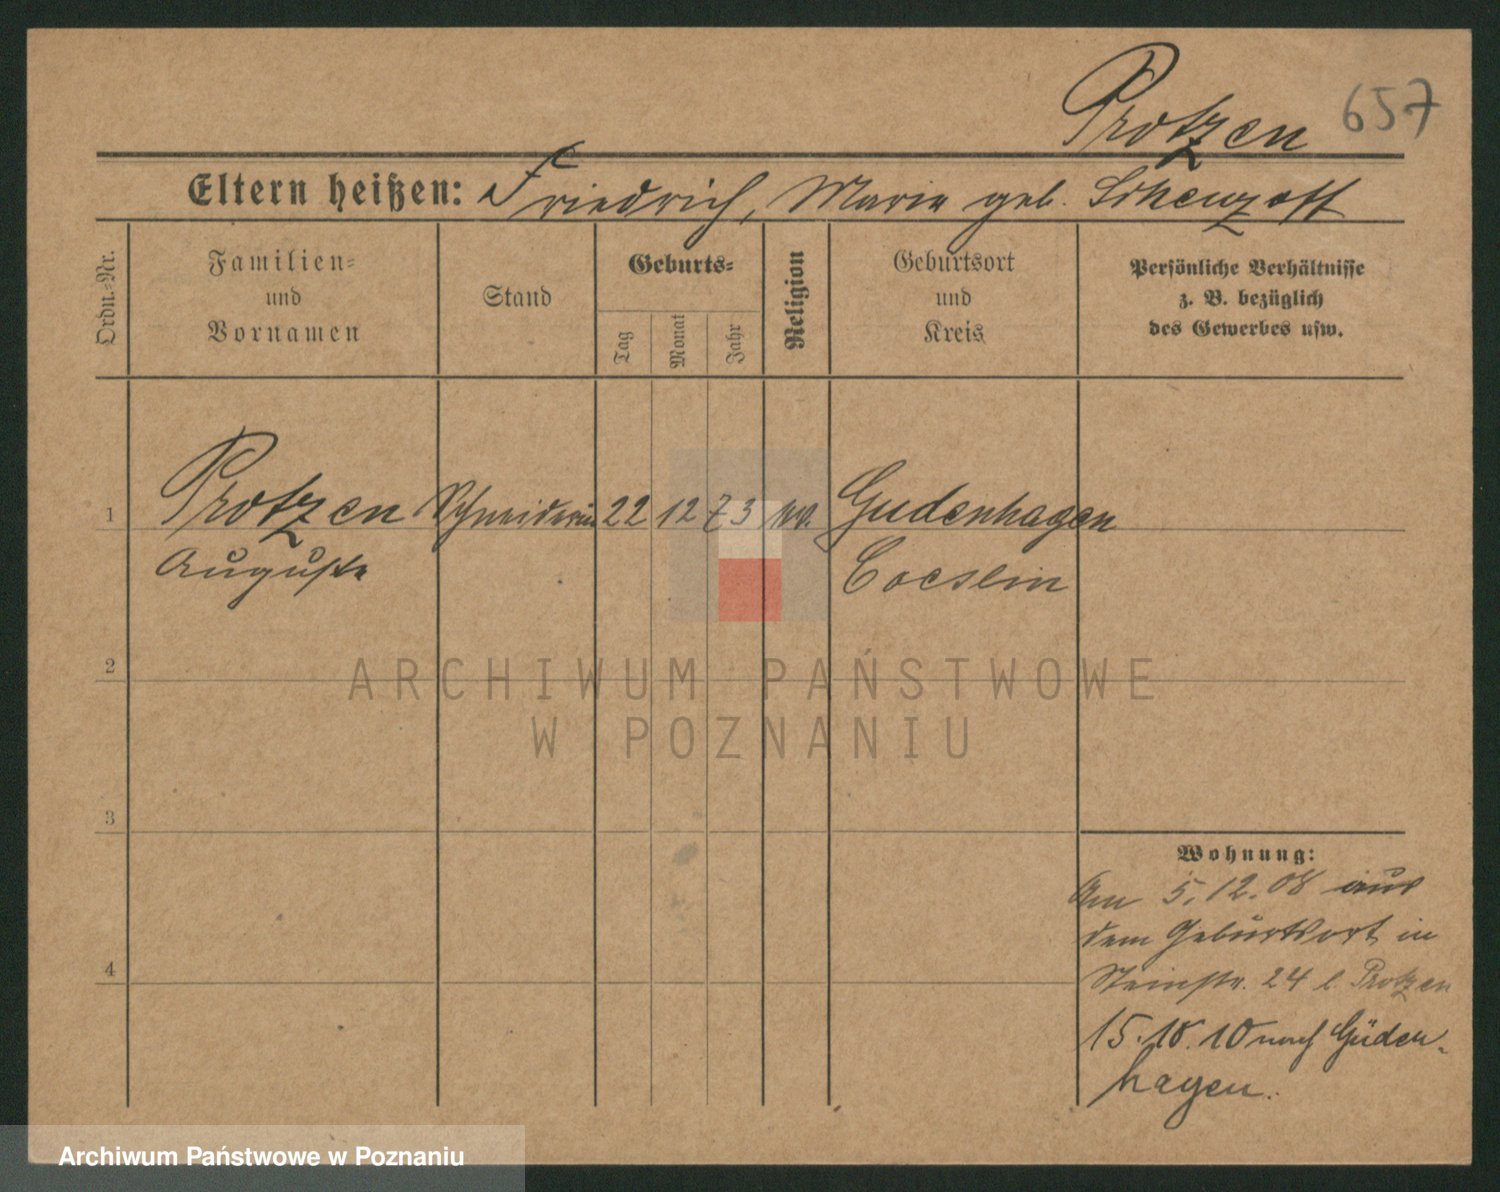 Protzen 657
Eltern heißen: Friedrich, Marie geb.
Ordn.-Nr.
Familien-
und
Vornamen
Stand
Geburts-
Tag
Monat
Jahr
Religion
Geburtsort
und
Kreis
Persönliche Verhältnisse
z. B. bezüglich
des Gewerbes usw.
1 Protzen Schneiderin 22 12 73 ev. Gudenhagen
Auguste Coeslin
2
3
4
Wohnung:
Am 5.12.08 aus
dem Geburtsort in
Steinstr. 24 b. Protzen
15.10.10 nach Güden-
hagen.
ARCHIWUM PAŃSTWOWE
W POZNANIU
Archiwum Państwowe w Poznaniu